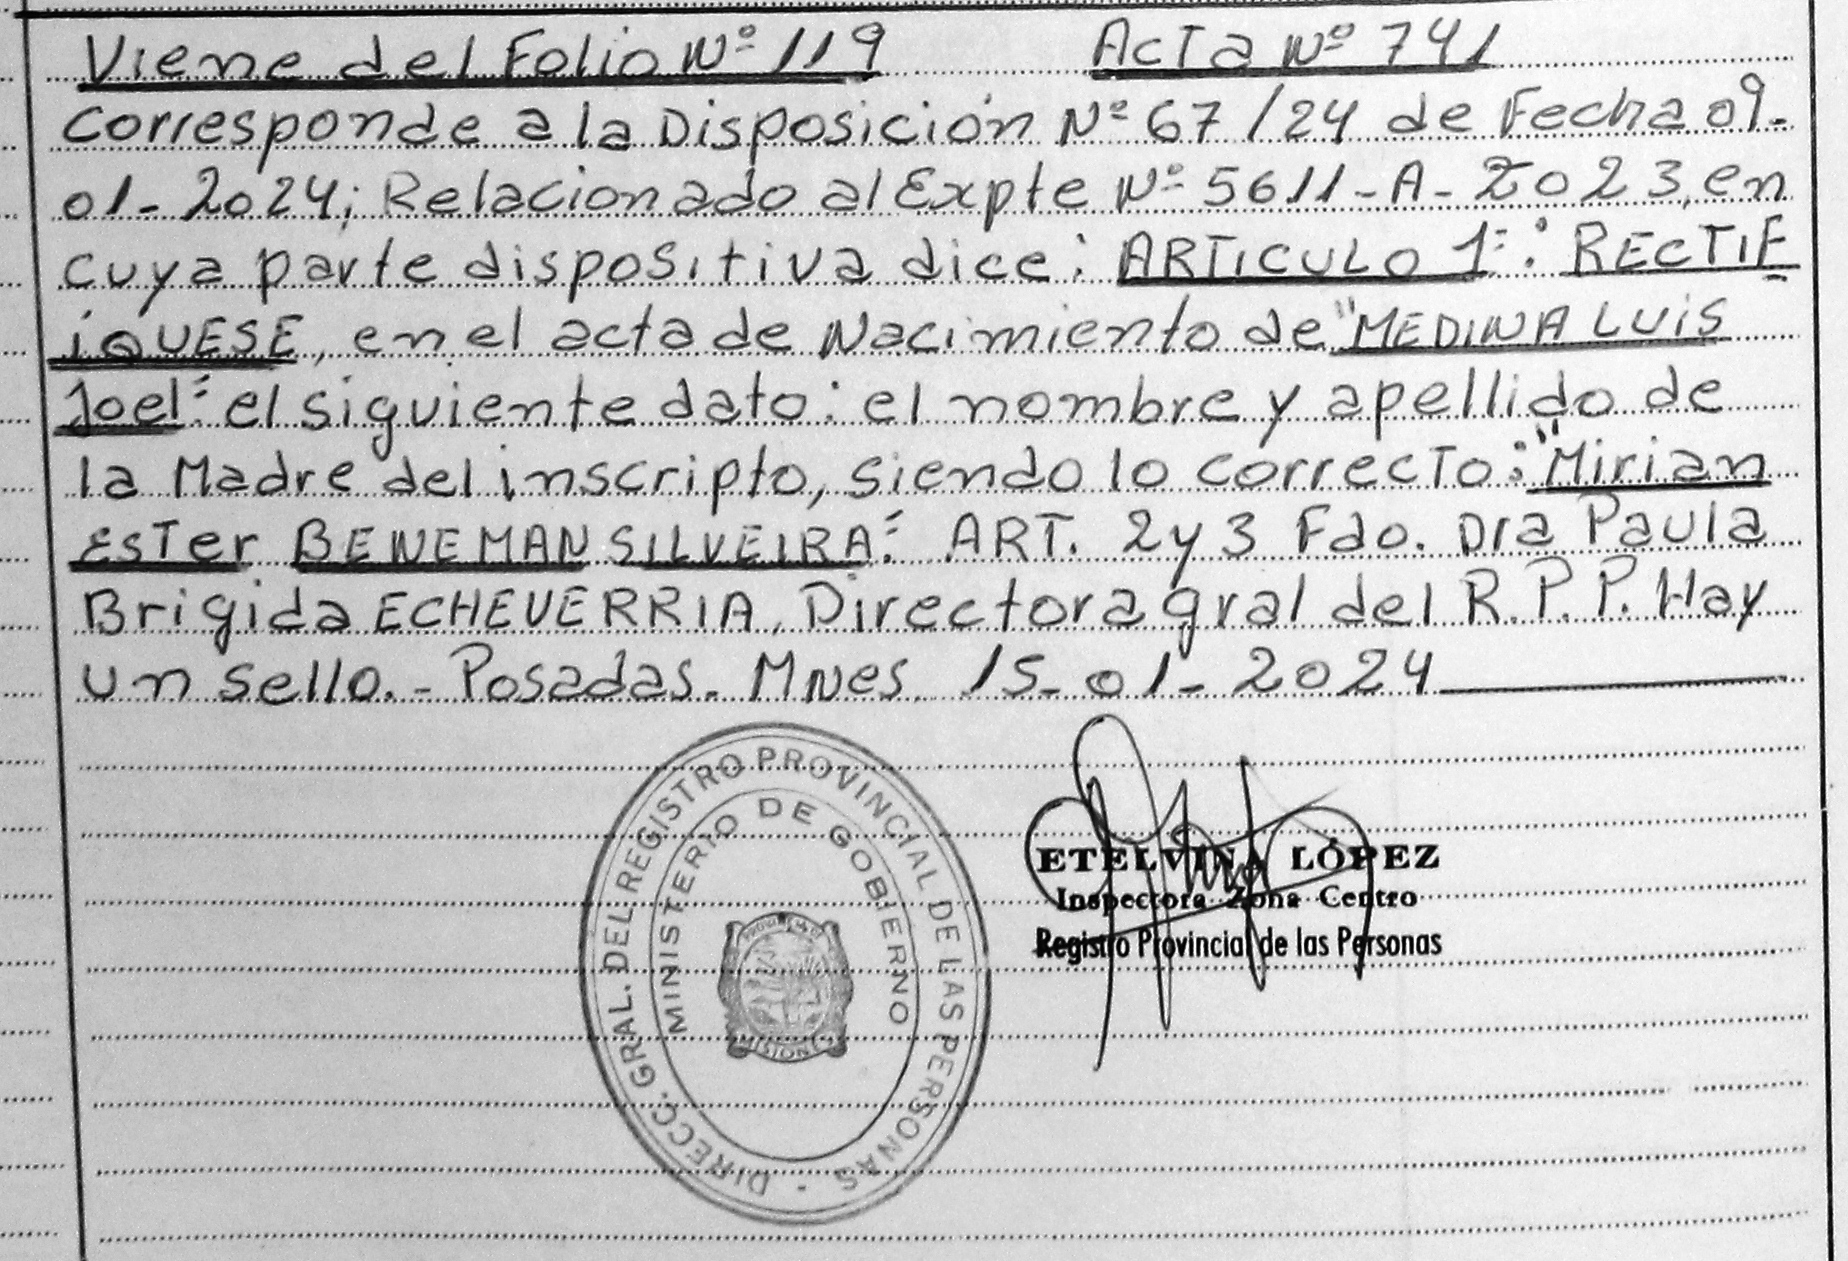 Viene del Folio Nº 119 Acta Nº 741
Corresponde a la Disposición Nº 67/24 de Fecha 09-
01-2024; Relacionado al Expte Nº 5611-A-2023, en
cuya parte dispositiva dice: ARTICULO 1º: RECTIF
iQUESE, en el acta de Nacimiento de "MEDINA LUIS
Joel": el siguiente dato: el nombre y apellido de
la Madre del inscripto, siendo lo correcto: "Mirian
Ester BENEMAN SILVEIRA": ART. 2 y 3 Fdo. Dra Paula
Brigida ECHEVERRIA, Directora gral del R.P.P. Hay
un sello.- Posadas. Mnes. 15-01-2024
DIRECC. GRAL. DEL REGISTRO PROVINCIAL DE LAS PERSONAS
MINISTERIO DE GOBIERNO
MISIONES
ETELVINA LÓPEZ
Inspectora Zona Centro
Registro Provincial de las Personas